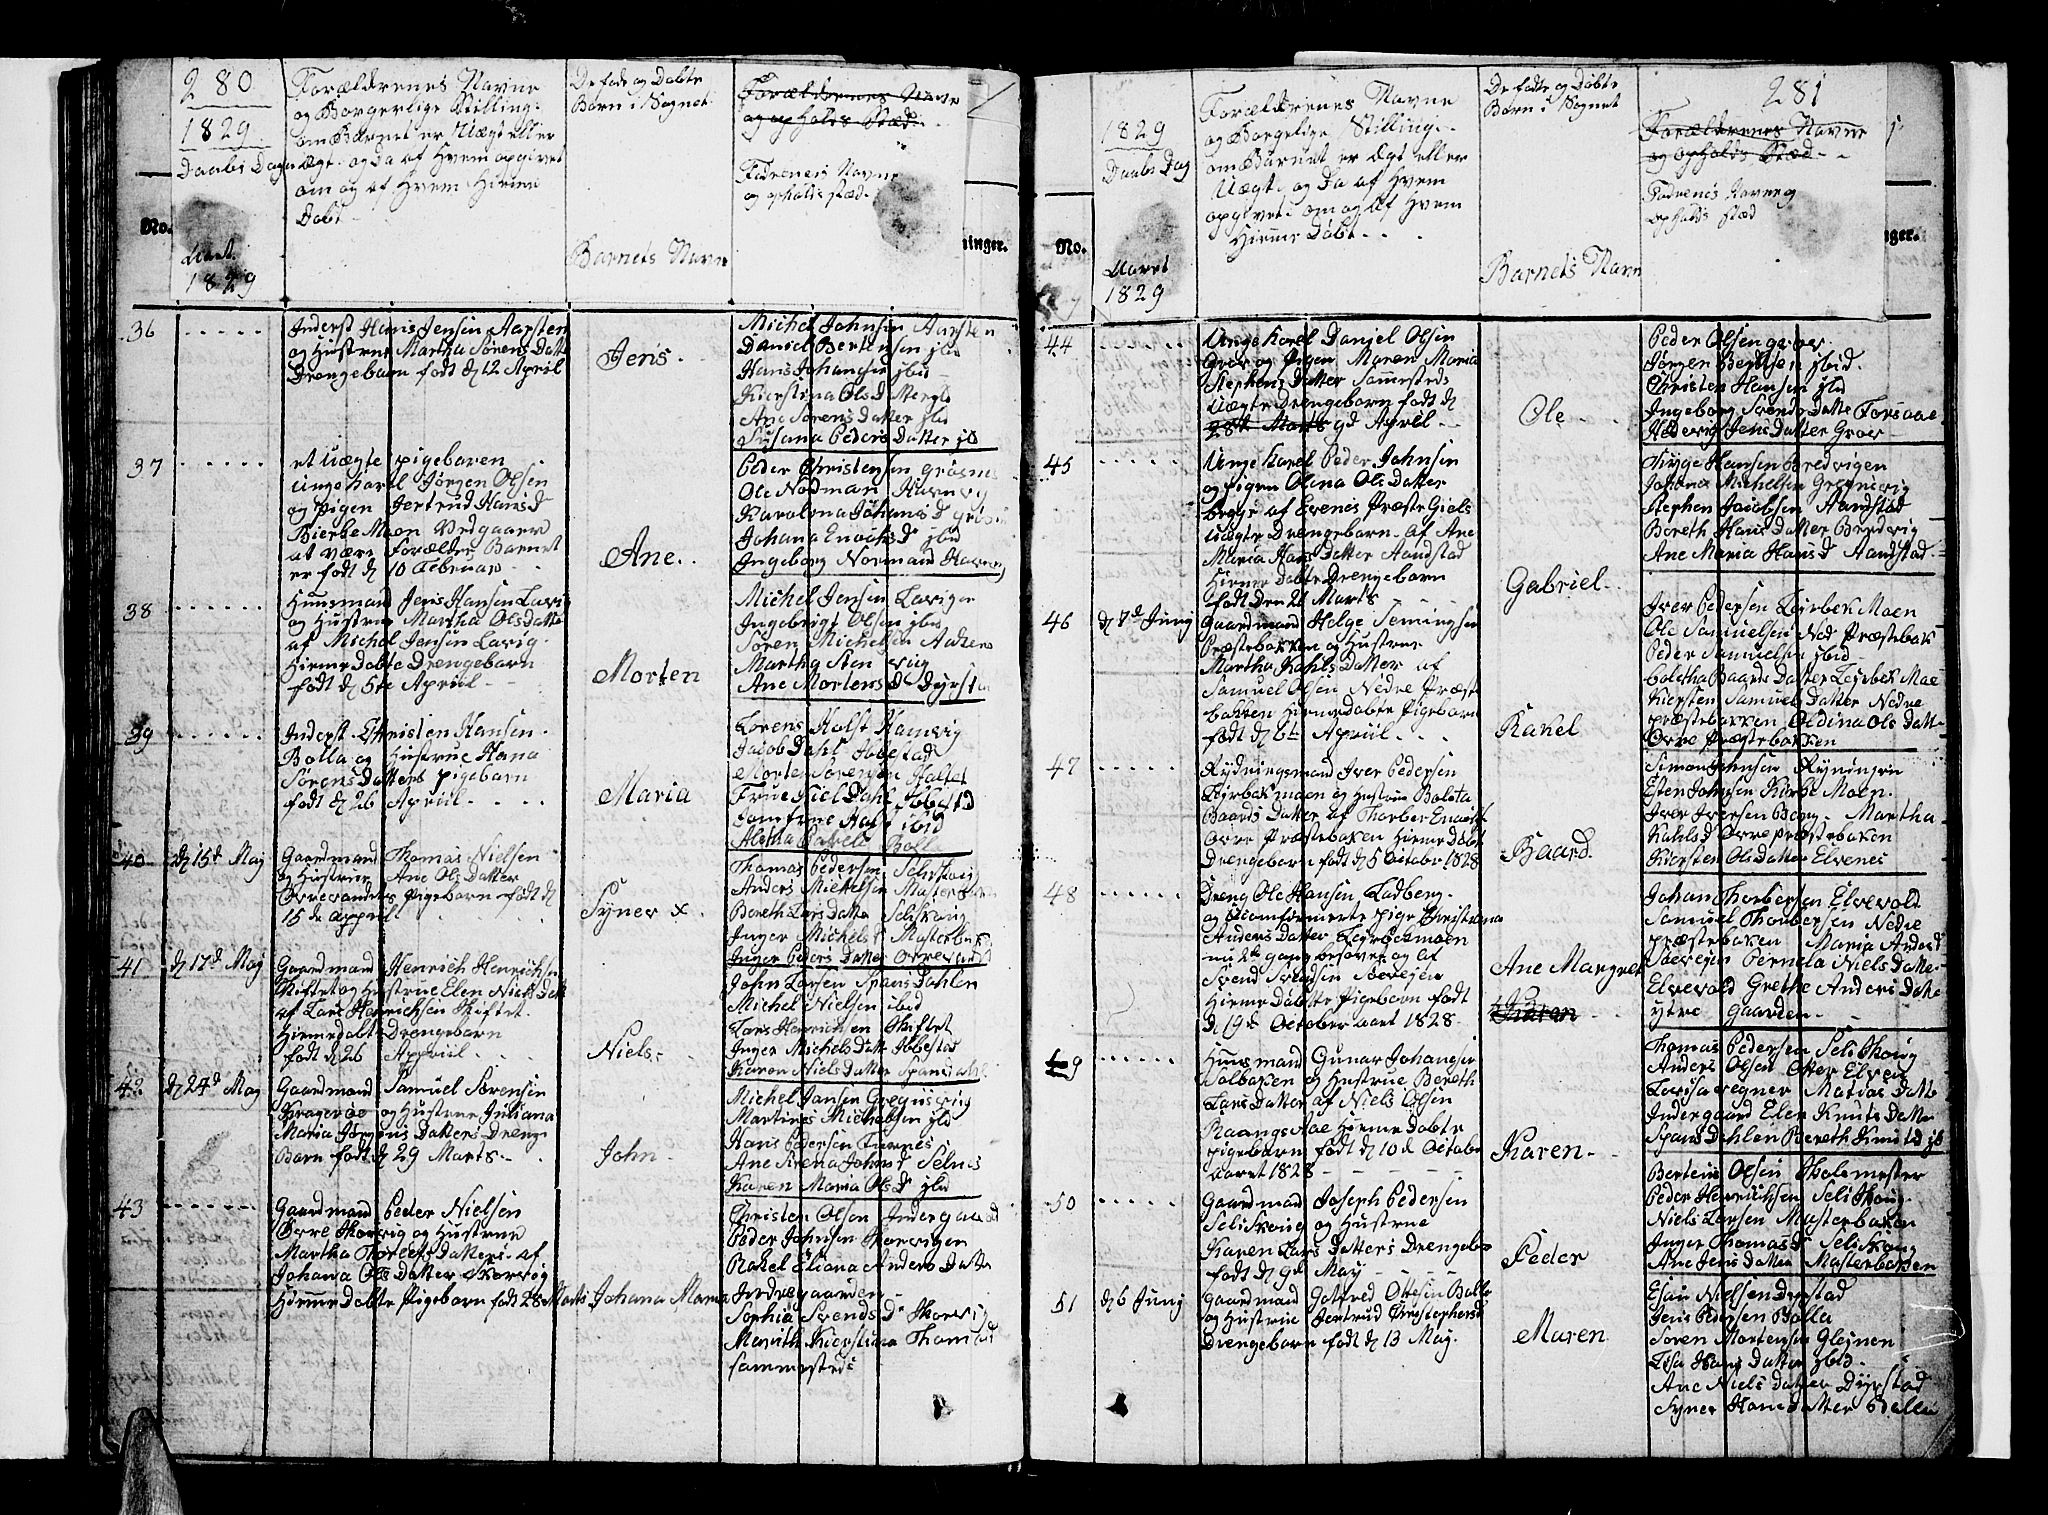 280
1829
Daabs Dagen
Aaret
1829
No.
Forældrenes Navne
og Borgerlige Stilling.
om Barnet er Uægt eller
ægt. og da af Hvem opgivet
om og af Hvem Hieme
Dobt
De fode og Dobte
Børn i Sognet
Barnets Navne
Forældrenes Navne
og opholds Stæd
Fadrenes Navne
og opholds stæd
ninger.
36
Inderst Hans Jensen Aarsten
og Hustrue Martha Sørens Datte
Drengebarn født d 12 April
Jens
Michel Johnsen Aarsten
Daniel Bertensen ibid
Hans Johansen ibid
Kierstina Olsd
Ane Sørens Datter ibid
Susana Peders Datter ib
37
et Uægte pigebaren
Unge karl Jørgen Olsen
og Pigen Jertrud Hansd
Bierbe Moen Vedgaaer
at være Forældre Barnet
er født d 10 Februar
Ane
Peder Christensen
Ole Nodman Havnvig
Karolena Johansd
Johana Enochsd ibid
Ingeborg Normand
38
Huusmand Jens Hansen Lavig
og Hustrue Martha Olsdatte
af Michel Jensen Lavig
Hieme Døbte Drengebarn
født d 5te Apriil
Morten
Michel Jensen Lavigen
Ingebrigt Olsen ibid
Søren Michelsen
Martha Sten
Ane Mortens D Dyrstad
39
Inderst Christen Hansen
Bolla og Hustrue Hana
Sørens Datters Pigebarn
født d 26 Apriil
Maria
Lorens Holst Hamvig
Jacob Dahl Ibbestad
Morten Sørensen
Frue Giel Dahl Ibbestad
Jomfrue Holst ibid
Bolla
40
d 15d Maj
Gaardmand Thomas Nielsen
og Hustrue Ane Ols Datter
Orrevandets Pigebarn født d
15de Appril
Syner x
Thomas Pedersen Seliskoug
Anders Michelsen
Bereth Lars Datte Seliskoug
Inger Michelsd Masterbak
Inger Peders Datter Orrevandet
41
d 17d Maj
Gaardmand Henrich Henrichsen
Skiftet og Hustrue Elen Niels Dat
af Lars Henrichsen Skiftet
Hiemedøbt Drengebarn
født d 26 Apriil
Niels
John Larsen Spans Dahlen
Michel Nielsen ibid
Lars Henrichsen Skiftet
Inger Michels Datte Ibbestad
Karen Niels Datter Spansdahl
42
d 24d Maj
Gaardmand Samuel Sørensen
Kragerøe og Hustrue Juliana
Maria Jørgens Datters Drenge
Barn født d 29 Marts
John
Michel Jansen Greguisvig
Martines Michelsen ibid
Hans Pedersen
Ane Serena Johnsd Selnes
Karen Maria Olsd ibid
43
Gaardmand Peder Nielsen
Øvre Skorvig og Hustrue
Martha Datters af
Johana Ols Datter Skorvig
Hieme Døbte Pigebarn født 28 Marts
Johana Maria
Christen Olsen Indergaard
Peder Johnsen Skorvigen
Rakel Eliana Anders Datte
Indregaarden
Sophia Svends D Skorvig
Marith Kierstina
sammesteds
281
1829
Daabs Dag
No.
Aaret
1829
Forældrenes Navne
og Borgelige Stilling
om Barnet er Ægt eller
Uægt. og Da af Hvem
opgivet om og af Hvem
Hieme Døbt
De fødte og Døbte
Børn i Sognet
Barnets Navn
Forældrenes Navne
og opholds Stæd
Fadrenes Navne og
opholds stæd
nger.
44
Unge Karel Danjel Olsen
Grov og Pigen Maren Maria
Stephens Datter Sammesteds
Uægte Drengebarn født d
28d Marts 9d Apriil
Ole
Peder Olsen
Jørgen Bentsen ibid.
Christen Hansen ibid
Ingeborg Svends Datte Forsaae
Hedevig Jens Datter Grov
45
Unge Karel Peder Johnsen
og Pigen Olena Ols Datter
begge af Evenes Præste Gield
Uægte Drengebarn af Ane
Maria Hans Datter Aandstad
Hieme Døbte Drengebarn
født Den 21 Marts
Gabriel
Tryge Hansen Bredvigen
Johanes Michelsen
Stephen Jacobsen Aandstad
Bereth Hans Datter Bredvig
Ane Maria Hans D Aandstad
46
d 7d Junj
Gaardmand Helge Semingsen
Præstebakken og Hustrue
Martha Kahls Datter af
Samuel Olsen Nedre Præst
bakken Hiemedøbte Pigebarn
født d 6te Apriil
Rakel
Iver Pedersen Lejrbek Moen
Ole Samuelsen Ned Præstebak
Peder Samuelsen ibid
boletha Baards Datter Lejrbek Moe
Kiersten Samuels Datter Nedre
præstebakken Oldina Ols Datt
Øvre Præstebakken
47
Rydningsmand Iver Pedersen
Lejrbek moen og Hustrue Boleta
Baards Datter af Thorber
Øvre Præstebaken Hieme Døbt
Drengebarn født d 5 October 1828
Baard
Simon Johnsen
Esten Johnsen Moen.
Iver Iversen Berg. Martha
Kahlsd Øvre Præstebaken
Kiersten Olsdatter Elvenes
48
Dreng Ole Hansen Ladberg
og Pige Christiana
Anders Datter Lejrbekmoen
nu 2de gang besovet og af
Svend Svendsen Søevejen
Hieme Døbte Pigebarn født
D 19d October aaret 1828
Ane Margret
Karen
Johan Thorbersen Elvevold
Samuel Thorbersen Nedre
præstebaken Maria Andersd
Søevejen Pernela Niels Datte
Elvevold Grethe Anders Datte
ytre gaarden
49
Huusmand Gunar Johansen
Solbaken og Hustrue Bereth
Lars Datter af Niels Olsen
Raangs Aae Hieme Døbte
pigebarn født d 10d October
aaret 1828
Karen
Thomas Pedersen Seliskoug
Anders Olsen Otter Elven
Lovisa vegner Matias Datte
Indergaard Elen Knuts Datte
Spans Dahlen Bereth Knutsd ib
50
Gaardmand Joseph Pedersen
Seliskoug og Hustrue
Karen Lars Datters Drengebar
født d 9d May
Peder
Berteus Olsen
Peder Henrichsen Seliskoug
Niels Larsen Masterbakken
Inger Thomasd Seliskoug
Ane Jens Datter Masterbakken
51
d 6 Junj
Gaardmand Gotfred Ottesen Bolle
og Hustrue Jertrud Christophersd
Drengebarn født d 13 Maj.
Maren
Esaia Nielsen Dyrstad
Jens Pedersen Bolla
Søren Mortensen Glejnen
Lisa Hans Datter ibid
Ane Niels Datter Dyrstad
Syner Hans datter Bolla